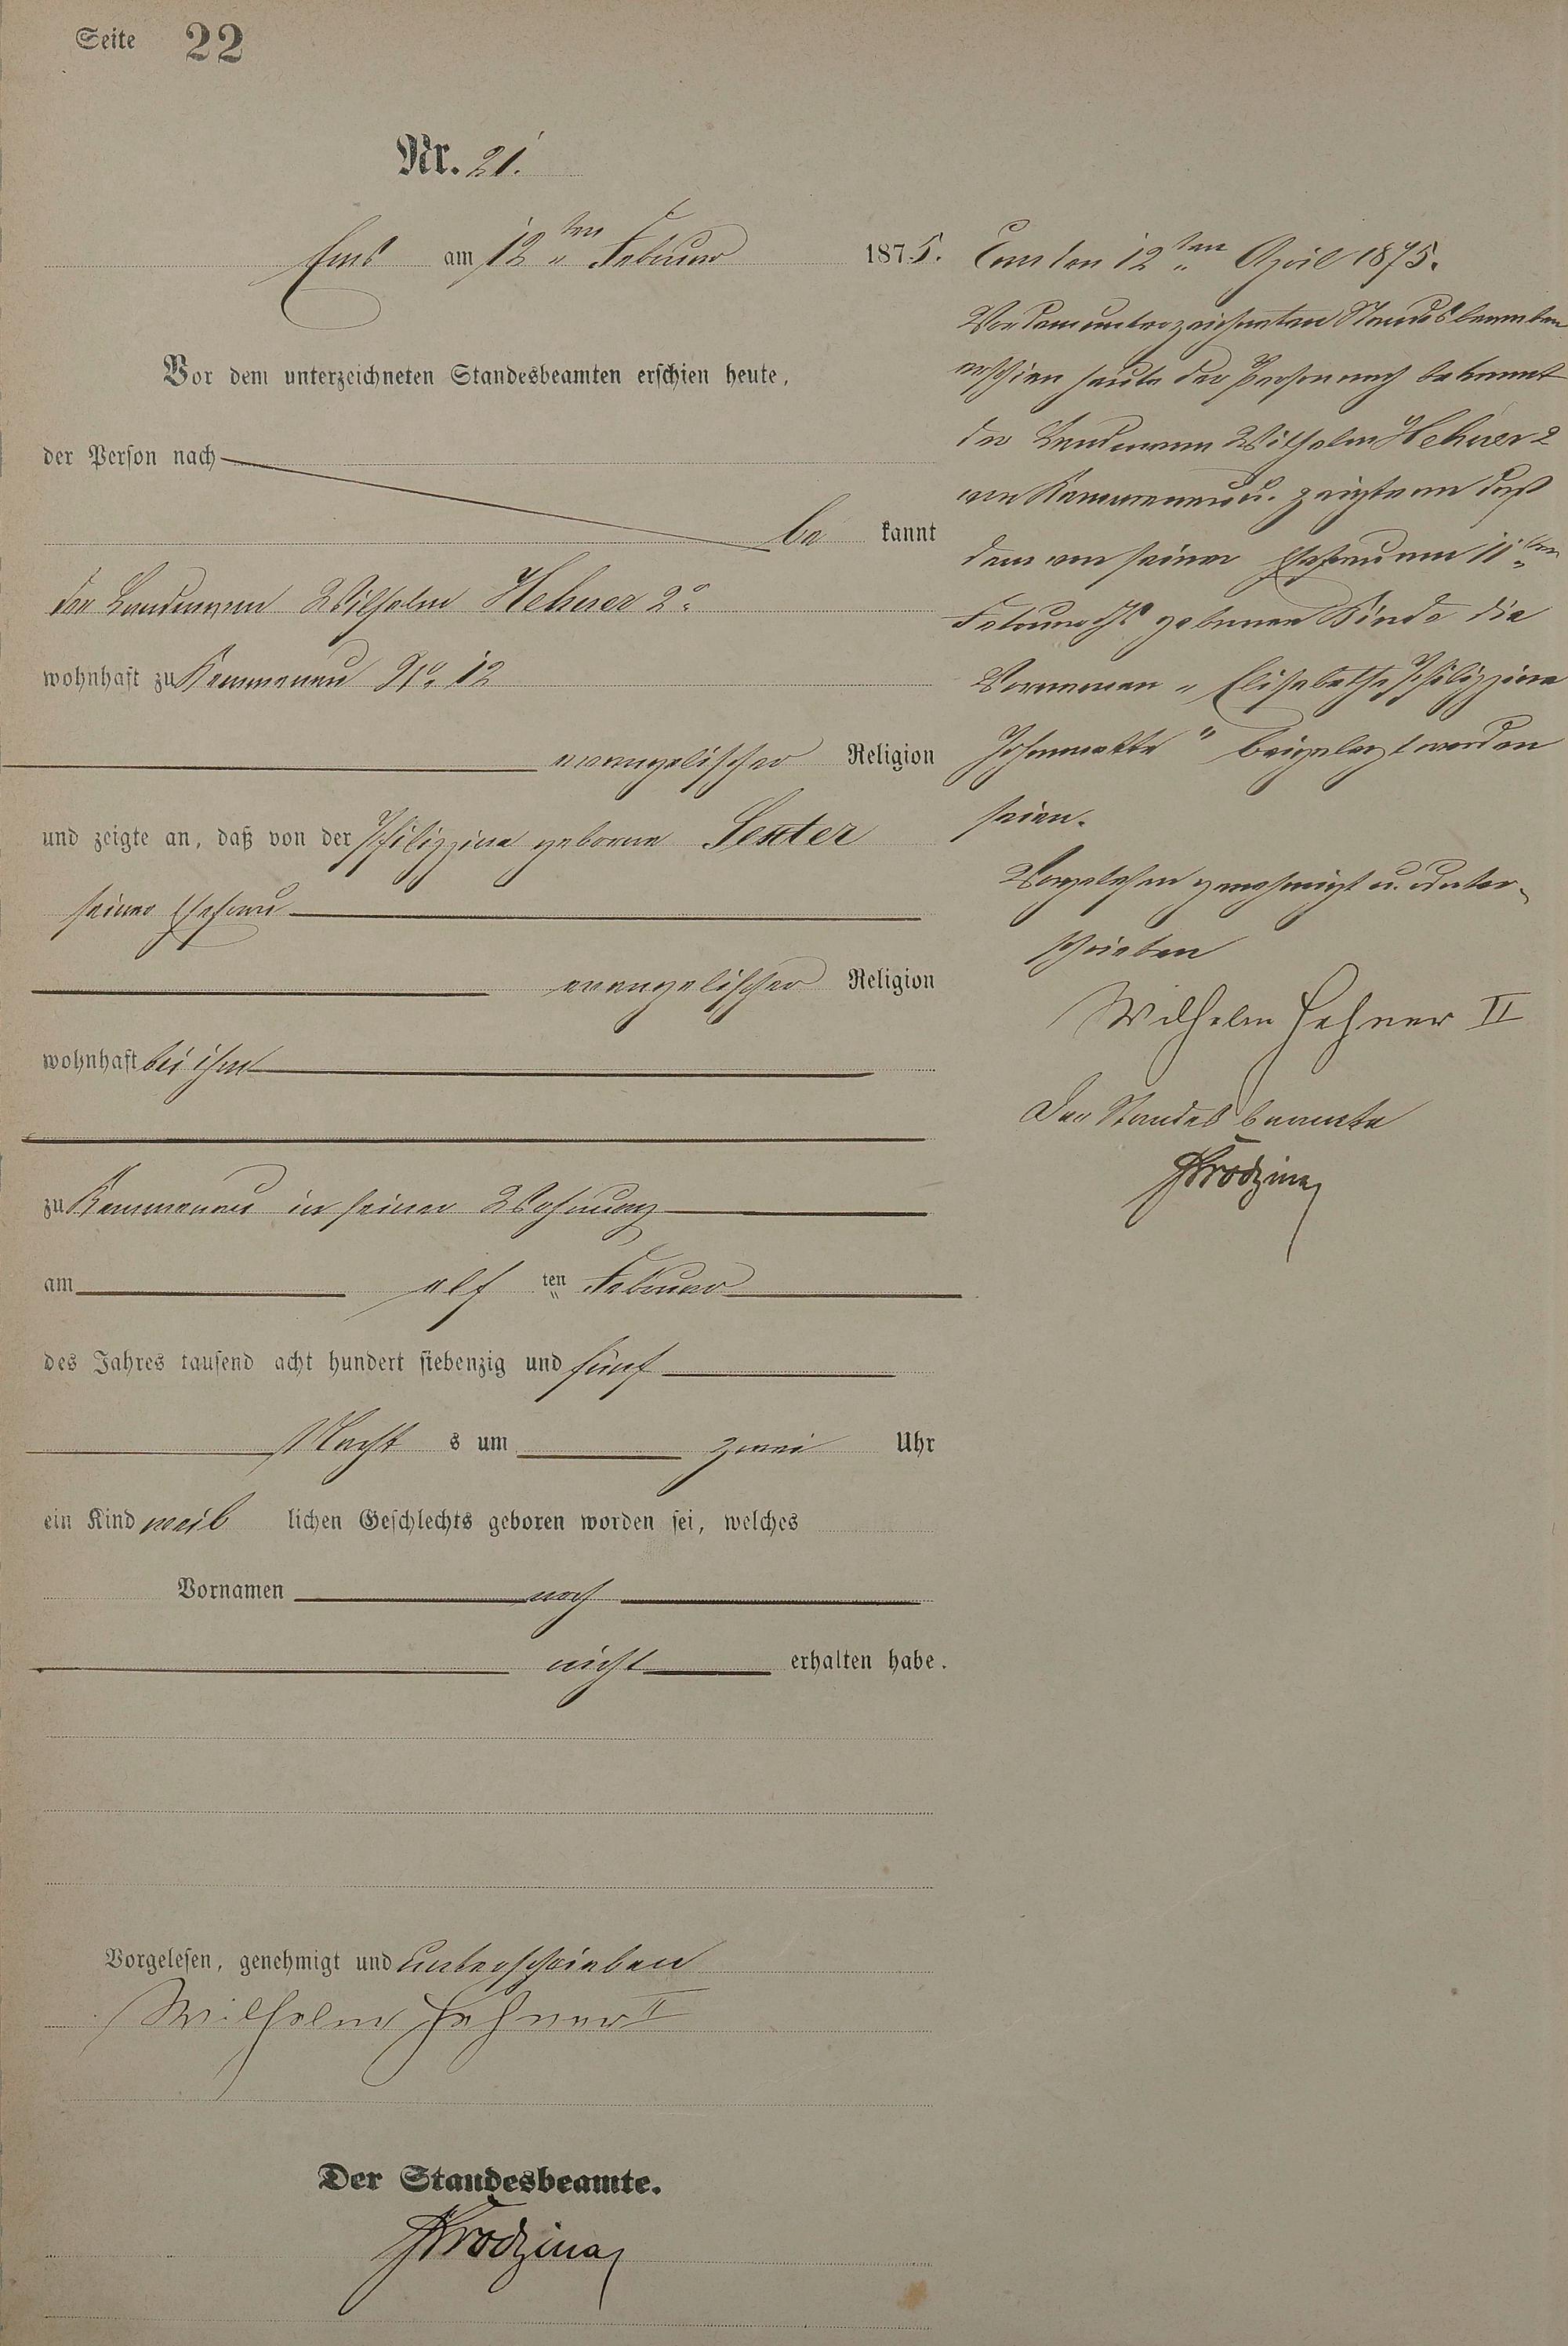 Seite 22
Nr. 21.
Ems am 12ten Februar 1875.
Vor dem unterzeichneten Standesbeamten erschien heute,
der Person nach
be kannt
der Landmann Wilhelm Hehner 2r
wohnhaft zu Kemmenau No 12
evangelischer Religion
und zeigte an, daß von der Philippine geborne Sexter
seiner Ehefrau
evangelischer Religion
wohnhaft bei ihm
zu Kemmenau in seiner Wohnung
am elf ten Februar
des Jahres tausend acht hundert siebenzig und fünf
Nacht s um zwei Uhr
ein Kind weib lichen Geschlechts geboren worden sei, welches
Vornamen noch
nicht erhalten habe.
Vorgelesen, genehmigt und unterschrieben
Wilhelm Hehner II
Der Standesbeamte.
Ems den 12ten April 1875.
Vor dem unterzeichneten Standesbeamten
erschien heute der Person nach bekannt
der Landmann Wilhelm Hehner 2
von Kemmenau u. zeigte an daß
dem von seiner Ehefrau am 11ten
Februar ds geborenen Kinde die
Vornamen "Elisabethe Philippine
Johannette" beigelegt worden
seien.
Vorgelesen genehmigt u. unter-
schrieben
Wilhelm Hehner II
Der Standesbeamte